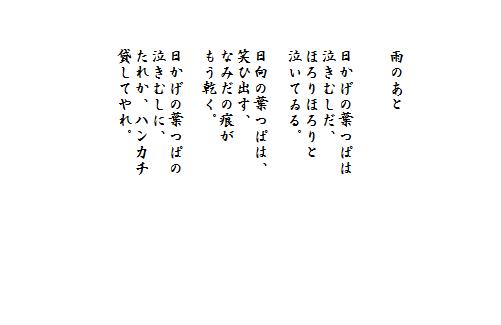 雨のあと
日かげの葉つぱは
泣きむしだ、
ほろりほろりと
泣いてゐる。
日向の葉つぱは、
笑ひ出す、
なみだの痕が
もう乾く。
日かげの葉つぱの
泣きむしに、
たれか、ハンカチ
貸してやれ。